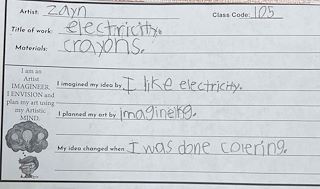 Artist: zayn Class Code: 105
Title of work: electricity.
Materials: crayons.
I am an
Artist
IMAGINEER.
I ENVISION and
plan my art using
my Artistic
MIND.
I imagined my idea by I like electricity.
I planned my art by imagineing.
My idea changed when I was done colering.